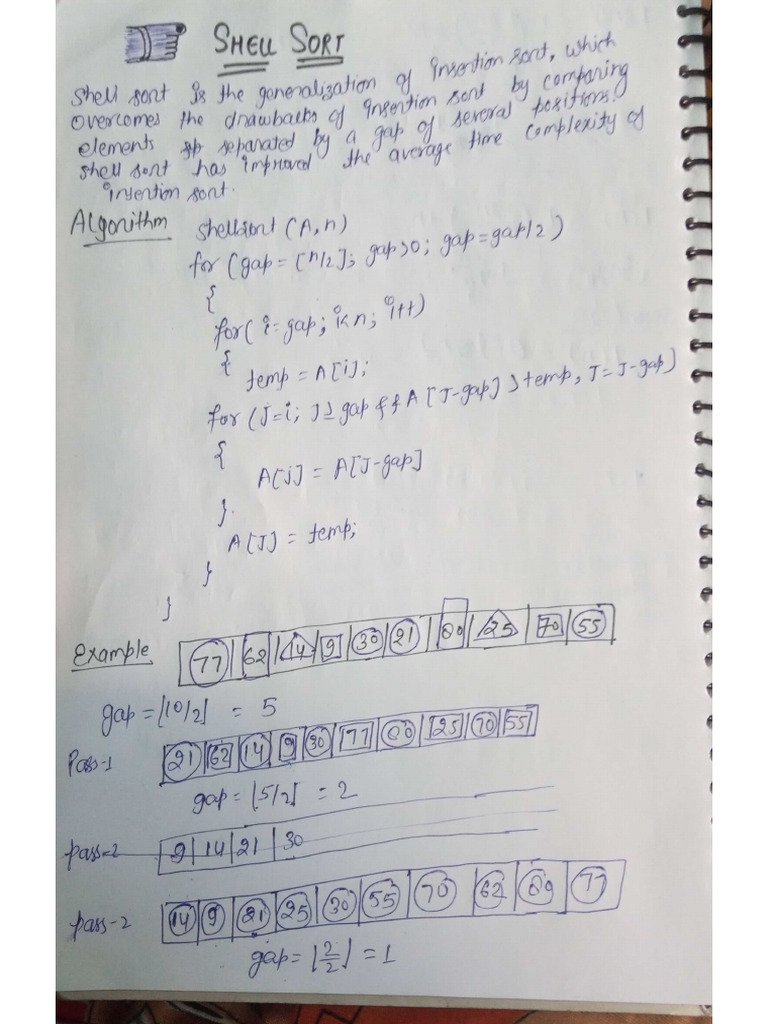 SHELL SORT
Shell sort is the generalization of insertion sort, which
overcomes the drawbacks of insertion sort by comparing
elements separated by a gap of several positions.
shell sort has improved the average time complexity of
insertion sort.
Algorithm shellsort (A,n)
for (gap = [n/2]; gap>0; gap=gap/2)
{
for( i=gap; i<n; i++)
{
temp = A[i];
for (J=i; J≥gap && A[J-gap] > temp, J=J-gap)
{
A[j] = A[J-gap]
}.
A[J] = temp;
}
}
Example 77 62 14 9 30 21 80 25 70 55
gap = ⌊10/2⌋ = 5
Pass-1 21 62 14 9 30 77 80 25 70 55
gap = ⌊5/2⌋ = 2
pass-2 9 14 21 30
pass-2 14 9 21 25 30 55 70 62 77
gap = ⌊2/2⌋ = 1